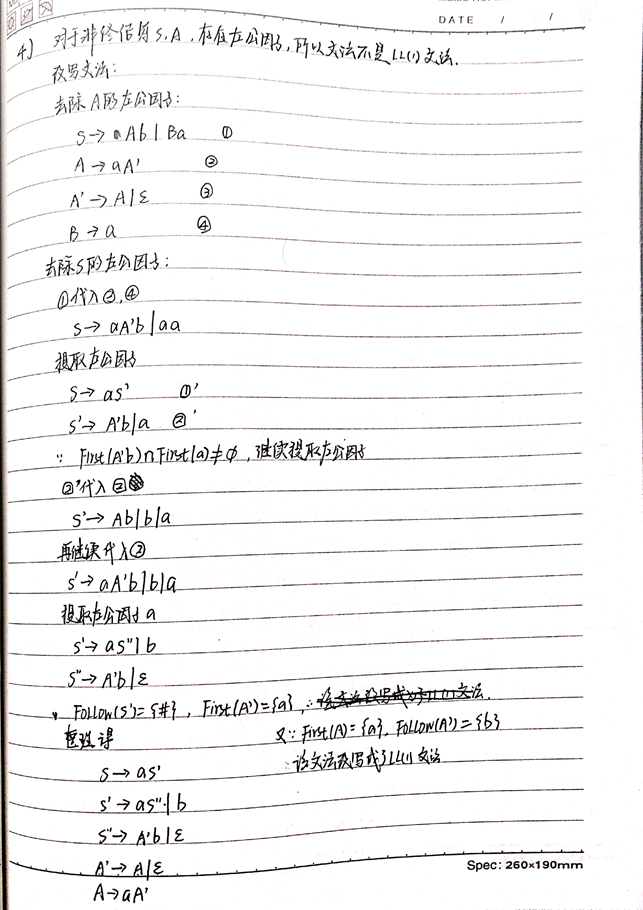 DATE / /
4.) 对于非终结符S,A,存在左公因子,所以文法不是LL(1)文法.
改写文法:
去除A的左公因子:
S→Ab|Ba ①
A→aA' ②
A'→A|ε ③
B→a ④
去除S的左公因子:
①代入②,④
S→aA'b|aa
提取左公因子
S→aS' ①'
S'→A'b|a ②'
∵ First(A'b)∩First(a)≠φ,继续提取左公因子
②'代入③
S'→Ab|b|a
再继续代入②
S'→aA'b|b|a
提取左公因子a
S'→aS''|b
S''→A'b|ε
Follow(S')={#}, First(A')={a},∴该文法改写成了LL(1)文法.
整理得
又∵First(A)={a}, Follow(A')={b}
∴该文法改写成了LL(1)文法
S→aS'
S'→aS''|b
S''→A'b|ε
A'→A|ε
A→aA'
Spec: 260×190mm